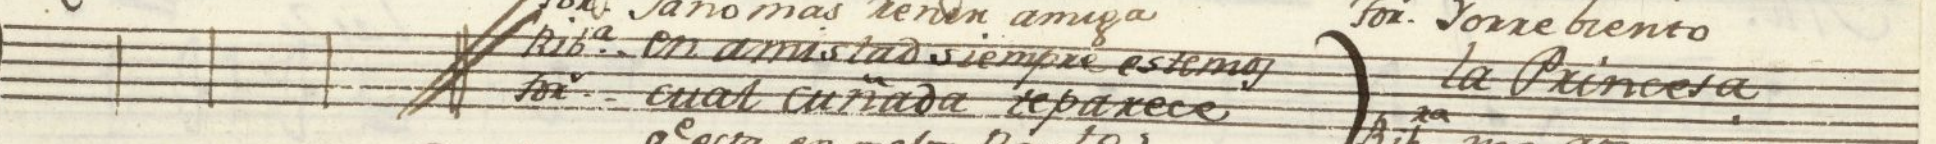 Jor. Ya no mas renir amiga
Rib.a en amistad siempre estemos
Jor. cual cuñada te parece
qe esta en
Jor. Yorrebiento
la Princesa.
Rib.ra